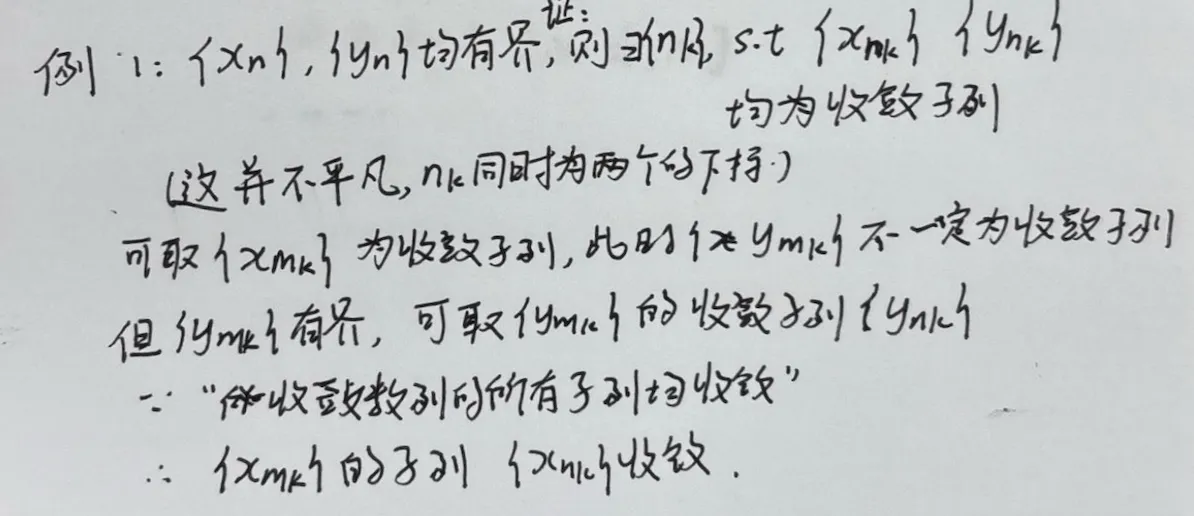 证:
例1: {xn}, {yn}均有界, 则∃{nk}, s.t {xnk} {ynk}
均为收敛子列
(这并不平凡, nk同时为两个的下标.)
可取{xmk}为收敛子列, 此时{ymk}不一定为收敛子列
但{ymk}有界, 可取{ymk}的收敛子列{ynk}
∵ “收敛数列的所有子列均收敛”
∴ {xmk}的子列 {xnk}收敛.